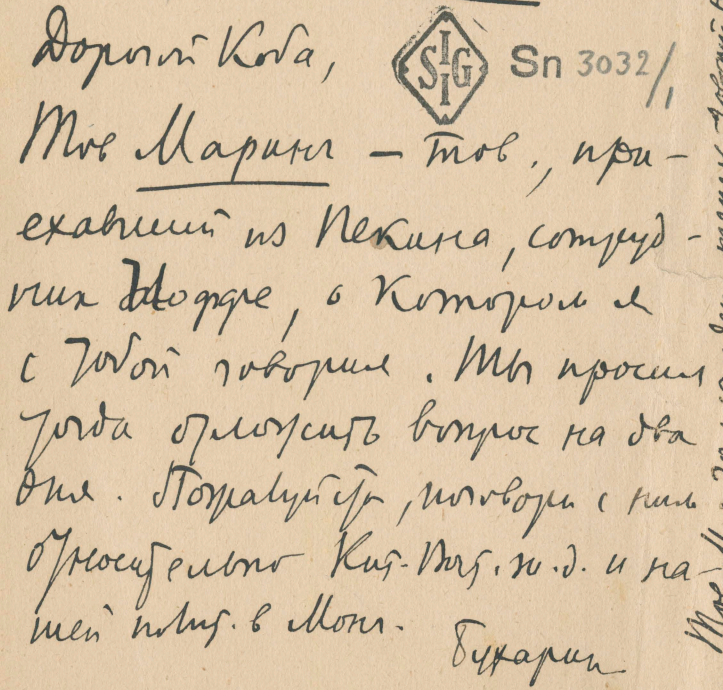 Дорогой Коба,
SIIG
Sn 3032/1
Тов Маринг — тов., при-
ехавший из Пекина, сотруд-
ник Иоффе, о котором я
с тобой говорил. Ты просил
тогда отложить вопрос на два
дня. Пожалуйста, поговори с ним
относительно Кит.-Вост. ж.д. и на-
шей полит. в Монг.
Бухарин
Тов М.